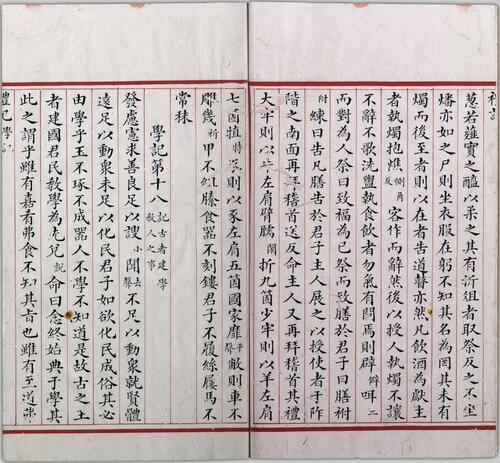 蔥若薤實之醯以柔之其有折俎者取祭反之不坐
燔亦如之尸則坐衣服在躬不知其名為罔其未有
燭而後至者則以在者告道瞽亦然凡飲酒為獻主
者執燭抱燋側角反客作而辭然後以授人執燭不讓
不辭不歌洗盥執食飲者勿氣有問焉則辟僻咡二
而對為人祭曰致福為己祭而致膳於君子曰膳祔
附練曰告凡膳告於君子主人展之以授使者于阼
階之南面再拜稽首送反命主人又再拜稽首其禮
大牢則以牛左肩臂臑閙折九箇少牢則以羊左肩
七箇犆特豕則以豕左肩五箇國家靡平聲敝則車不
雕幾祈甲不組縢食器不刻鏤君子不履絲屨馬不
常秣
學記第十八記古者建學教人之事
發慮憲求善良足以謏小聞去聲不足以動衆就賢體
遠足以動衆未足以化民君子如欲化民成俗其必
由學乎玉不琢不成器人不學不知道是故古之王
者建國君民教學為先兌説命曰念終始典于學其
此之謂乎雖有嘉肴弗食不知其旨也雖有至道弗
禮記 學記